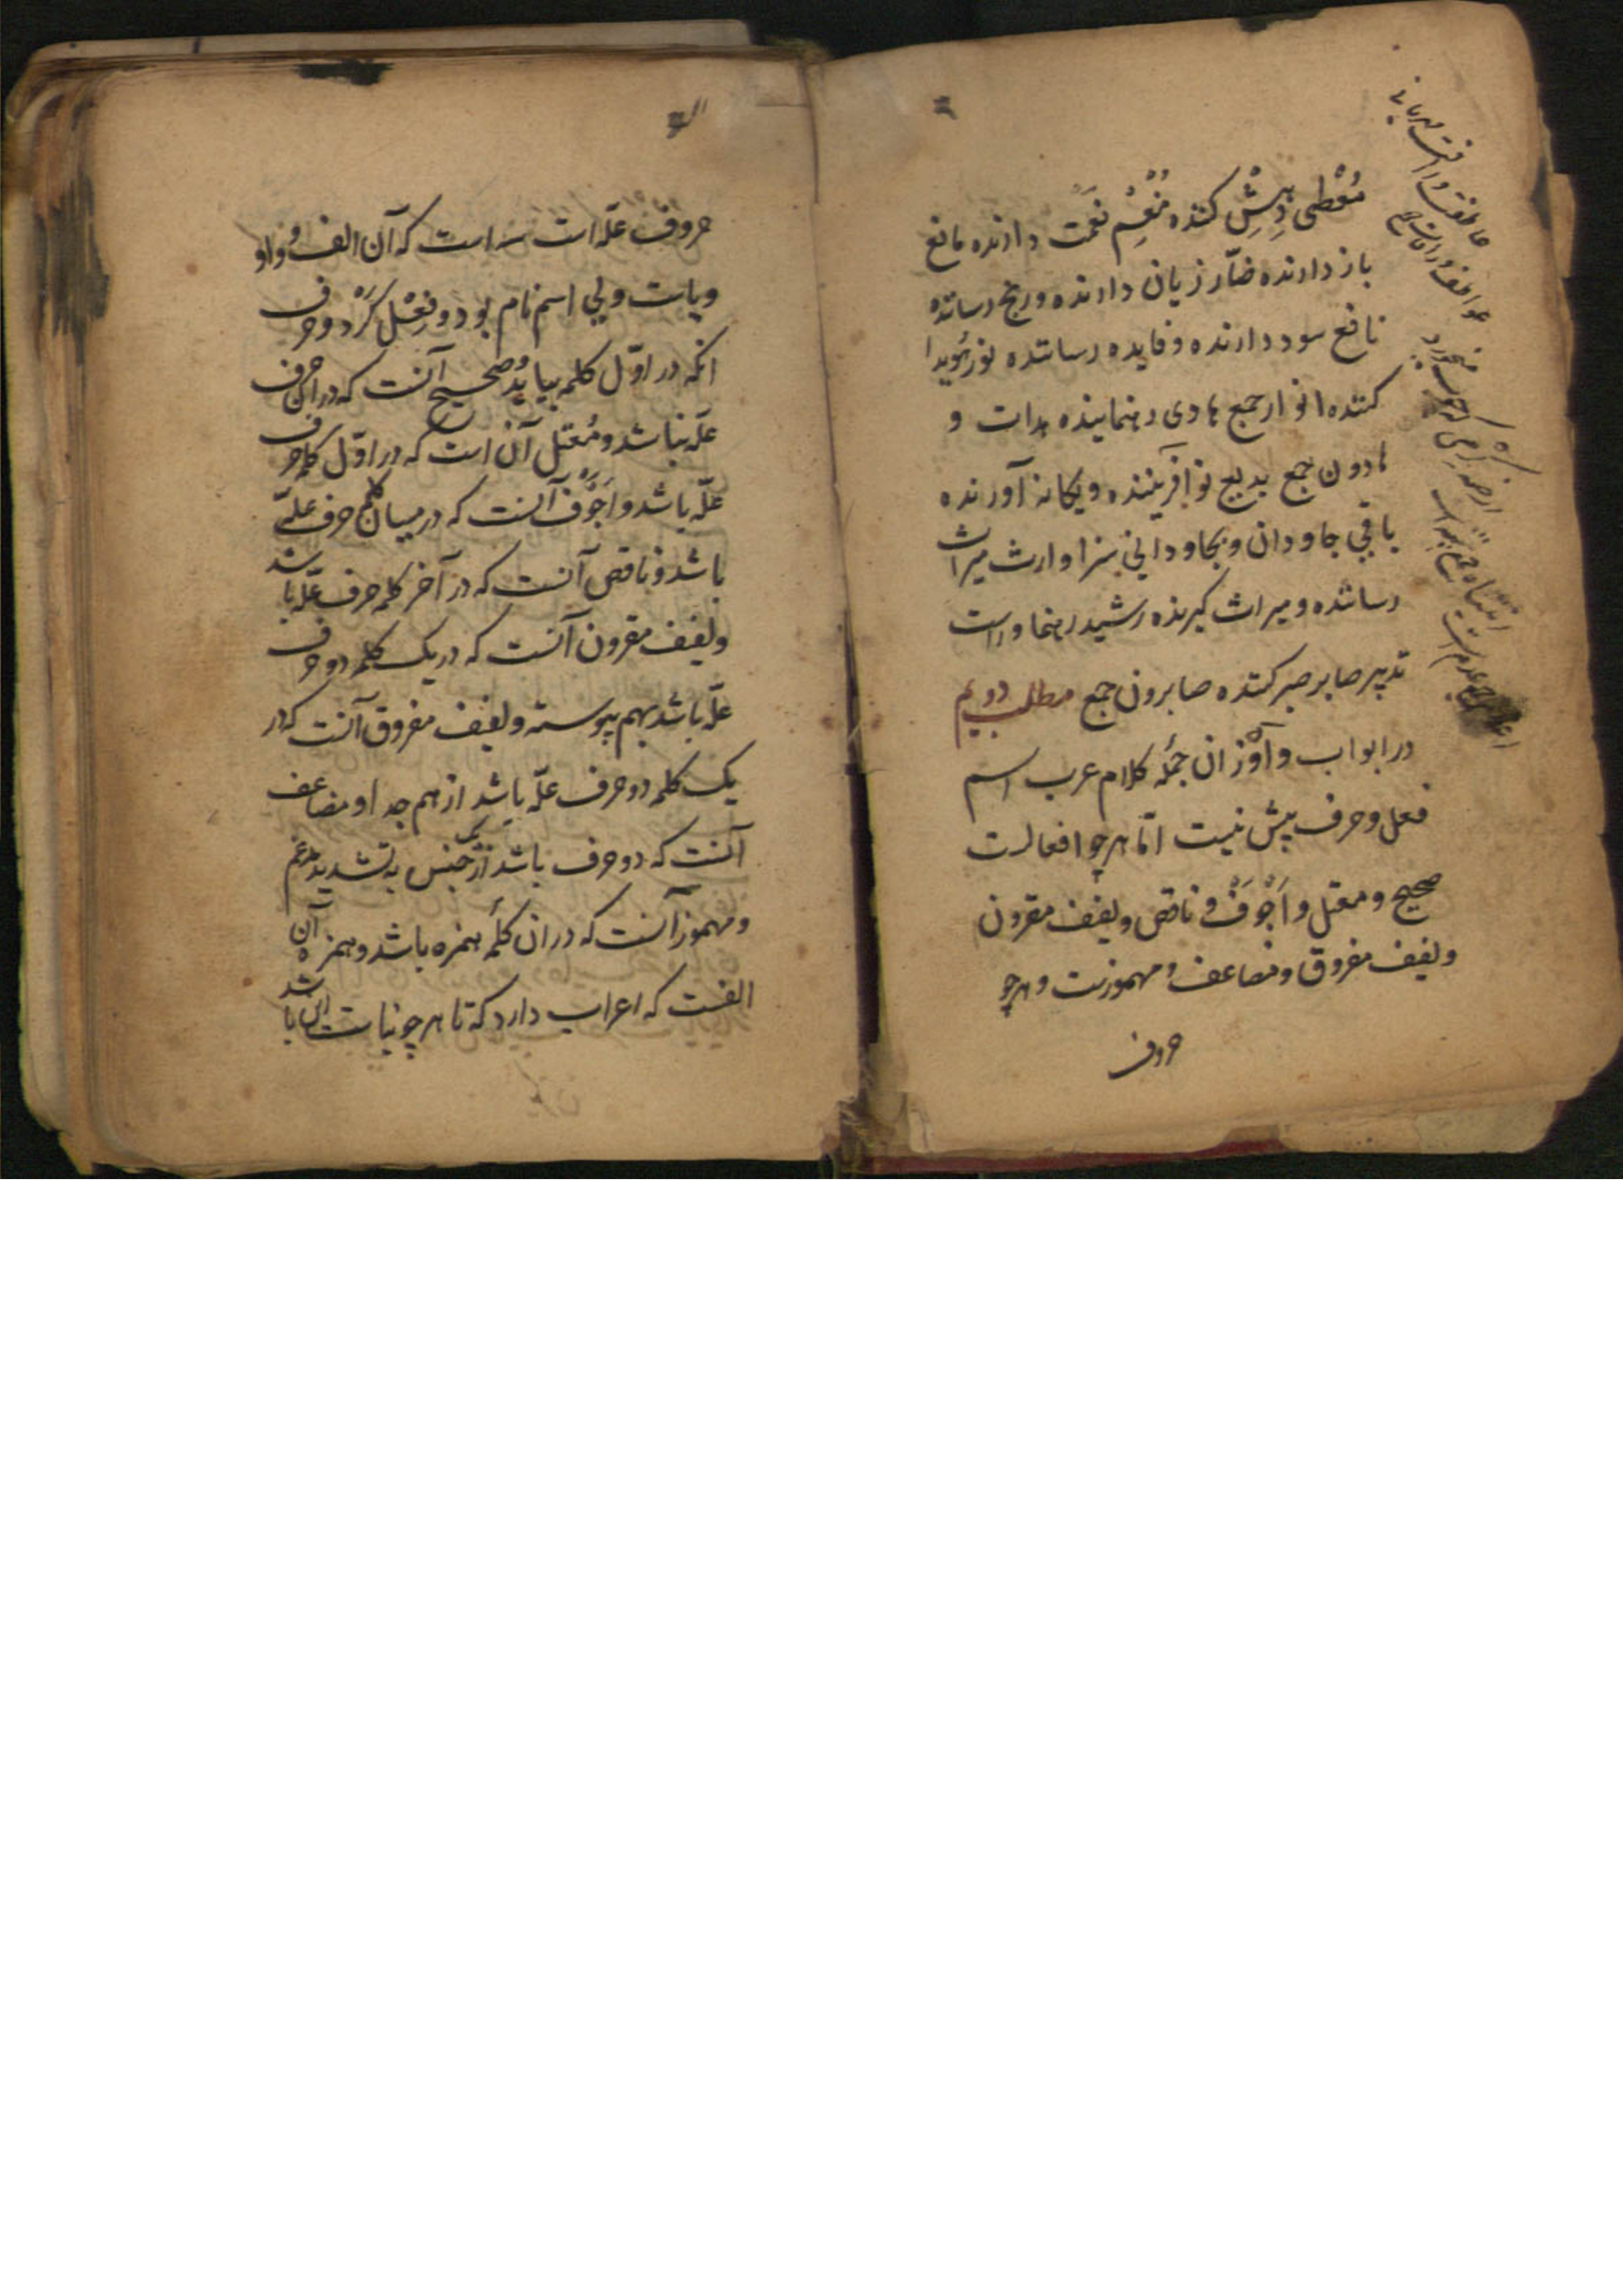 مُعْطِی دِهِشْ کننده مُنْعِمْ نعمت دارنده مانع
باز دارنده ضارّ زیان دارنده و رنج رساننده
نافع سود دارنده و فایده رساننده نور هُویدا
کننده انوار جمع هادی رهنماینده هدات و
هادون جمع بدیع نو آفریننده و یکانه آورنده
باقی جاودان و بجاودانی سزا وارث میراث
رساننده و میراث کیرنده رشید رهنما و راست
تدبیر صابر صبر کننده صابرون جمع مطلب دویم
در ابواب و آوْزان جُمله کلام عرب اسم
فعل و حرف بیش نیست امّا هر چو افعالست
صحیح و معتل و اَجْوَفْ و ناقص و لفیف مقرون
و لفیف مفروق و مضاعف و مهموزست و هرچو
حروف
حروف علّه است سه است که آن الف و واو
و یاست ولی اسم نام بود و فِعْل کَرْدو حرف
انکه در اوّل کلمه بیاید و صحیح آنست که در آن حرف
علّه نباشد و مُعْتل آن است که در اوّل کلمه حرف
علّه باشد و اَجْوَف آنست که در میان کلمه حرف علّه
باشد و ناقص آنست که در آخر کلمه حرف علّه باشد
و لفیف مقرون آنست که در یک کلمه دو حرف
علّه باشد بهم پیوسته و لفیف مفروق آنست که در
یک کلمه دو حرف علّه باشد از هم جدا و مضاعف
آنست که دو حرف باشد از یک جنس به تشدید مدغم
و مهموز آنست که در ان کلمه همزه باشد و همزه آن
الفست که اعراب دارد که تا هرچو